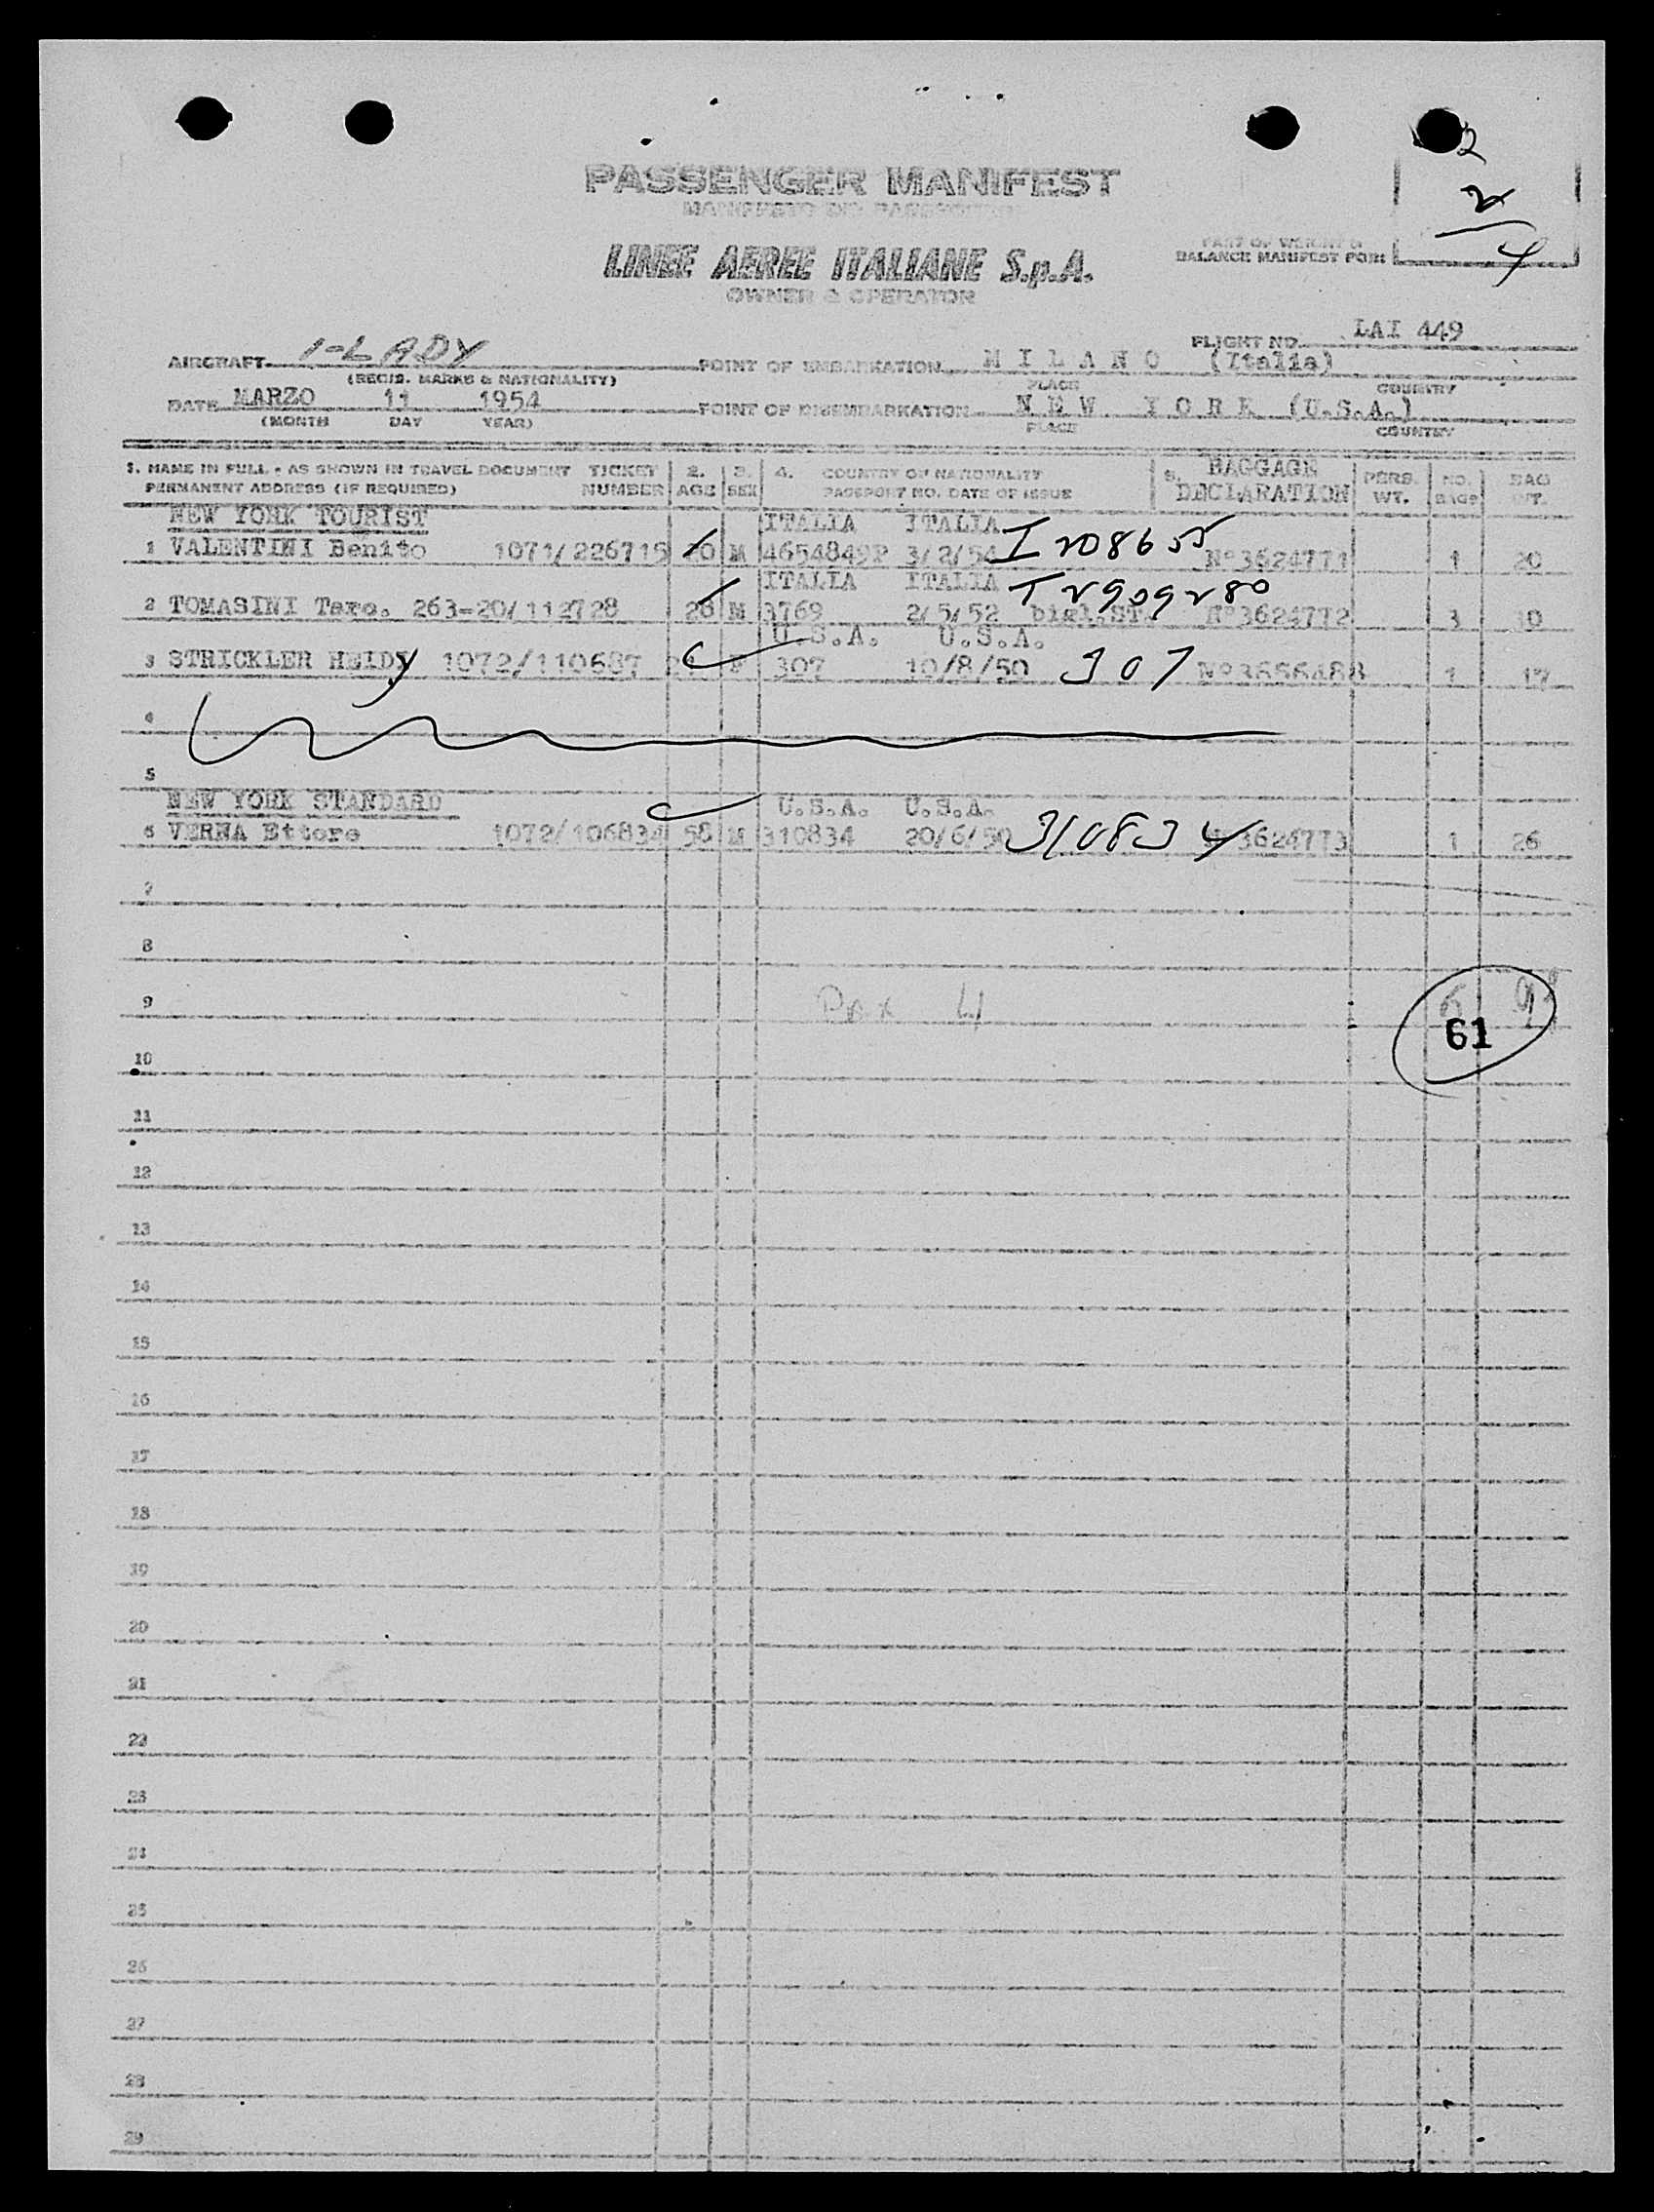 2
2
4
PASSENGER MANIFEST
LINEE AEREE ITALIANE S.p.A.
OWNER & OPERATOR
PART OF WEIGHT &
BALANCE MANIFEST FORM
FLIGHT NO. LAI 449
AIRCRAFT I-LADY POINT OF EMBARKATION MILANO (Italia)
(REGIS. MARKS & NATIONALITY) PLACE COUNTRY
DATE MARZO 11 1954 POINT OF DISEMBARKATION NEW YORK (U.S.A.)
(MONTH DAY YEAR) PLACE COUNTRY
1. NAME IN FULL - AS SHOWN IN TRAVEL DOCUMENT TICKET 2. 3. 4. COUNTRY OF NATIONALITY 5. BAGGAGE PERS. NO. BAG
PERMANENT ADDRESS (IF REQUIRED) NUMBER AGE SEX PASSPORT NO. DATE OF ISSUE DECLARATION WT. BAGS WT.
NEW YORK TOURIST ITALIA ITALIA
1 VALENTINI Benito 1071/226715 M 4654849P 3/2/54 I 208655 N°3624771 1 20
ITALIA ITALIA
2 TOMASINI Taxo. 263-20/112728 28 M 3769 2/5/52 bigl.ST. T 2909280 N°3624772 3 30
U.S.A. U.S.A.
3 STRICKLER HEIDY 1072/110687 F 307 10/8/50 307 1 17
4
5
NEW YORK STANDARD U.S.A. U.S.A.
6 VERNA Ettore 1072/106834 58 M 310834 20/6/50 310834 3624773 1 26
7
8
9 Pax 4 6
61
10
11
12
13
14
15
16
17
18
19
20
21
22
23
24
25
26
27
28
29